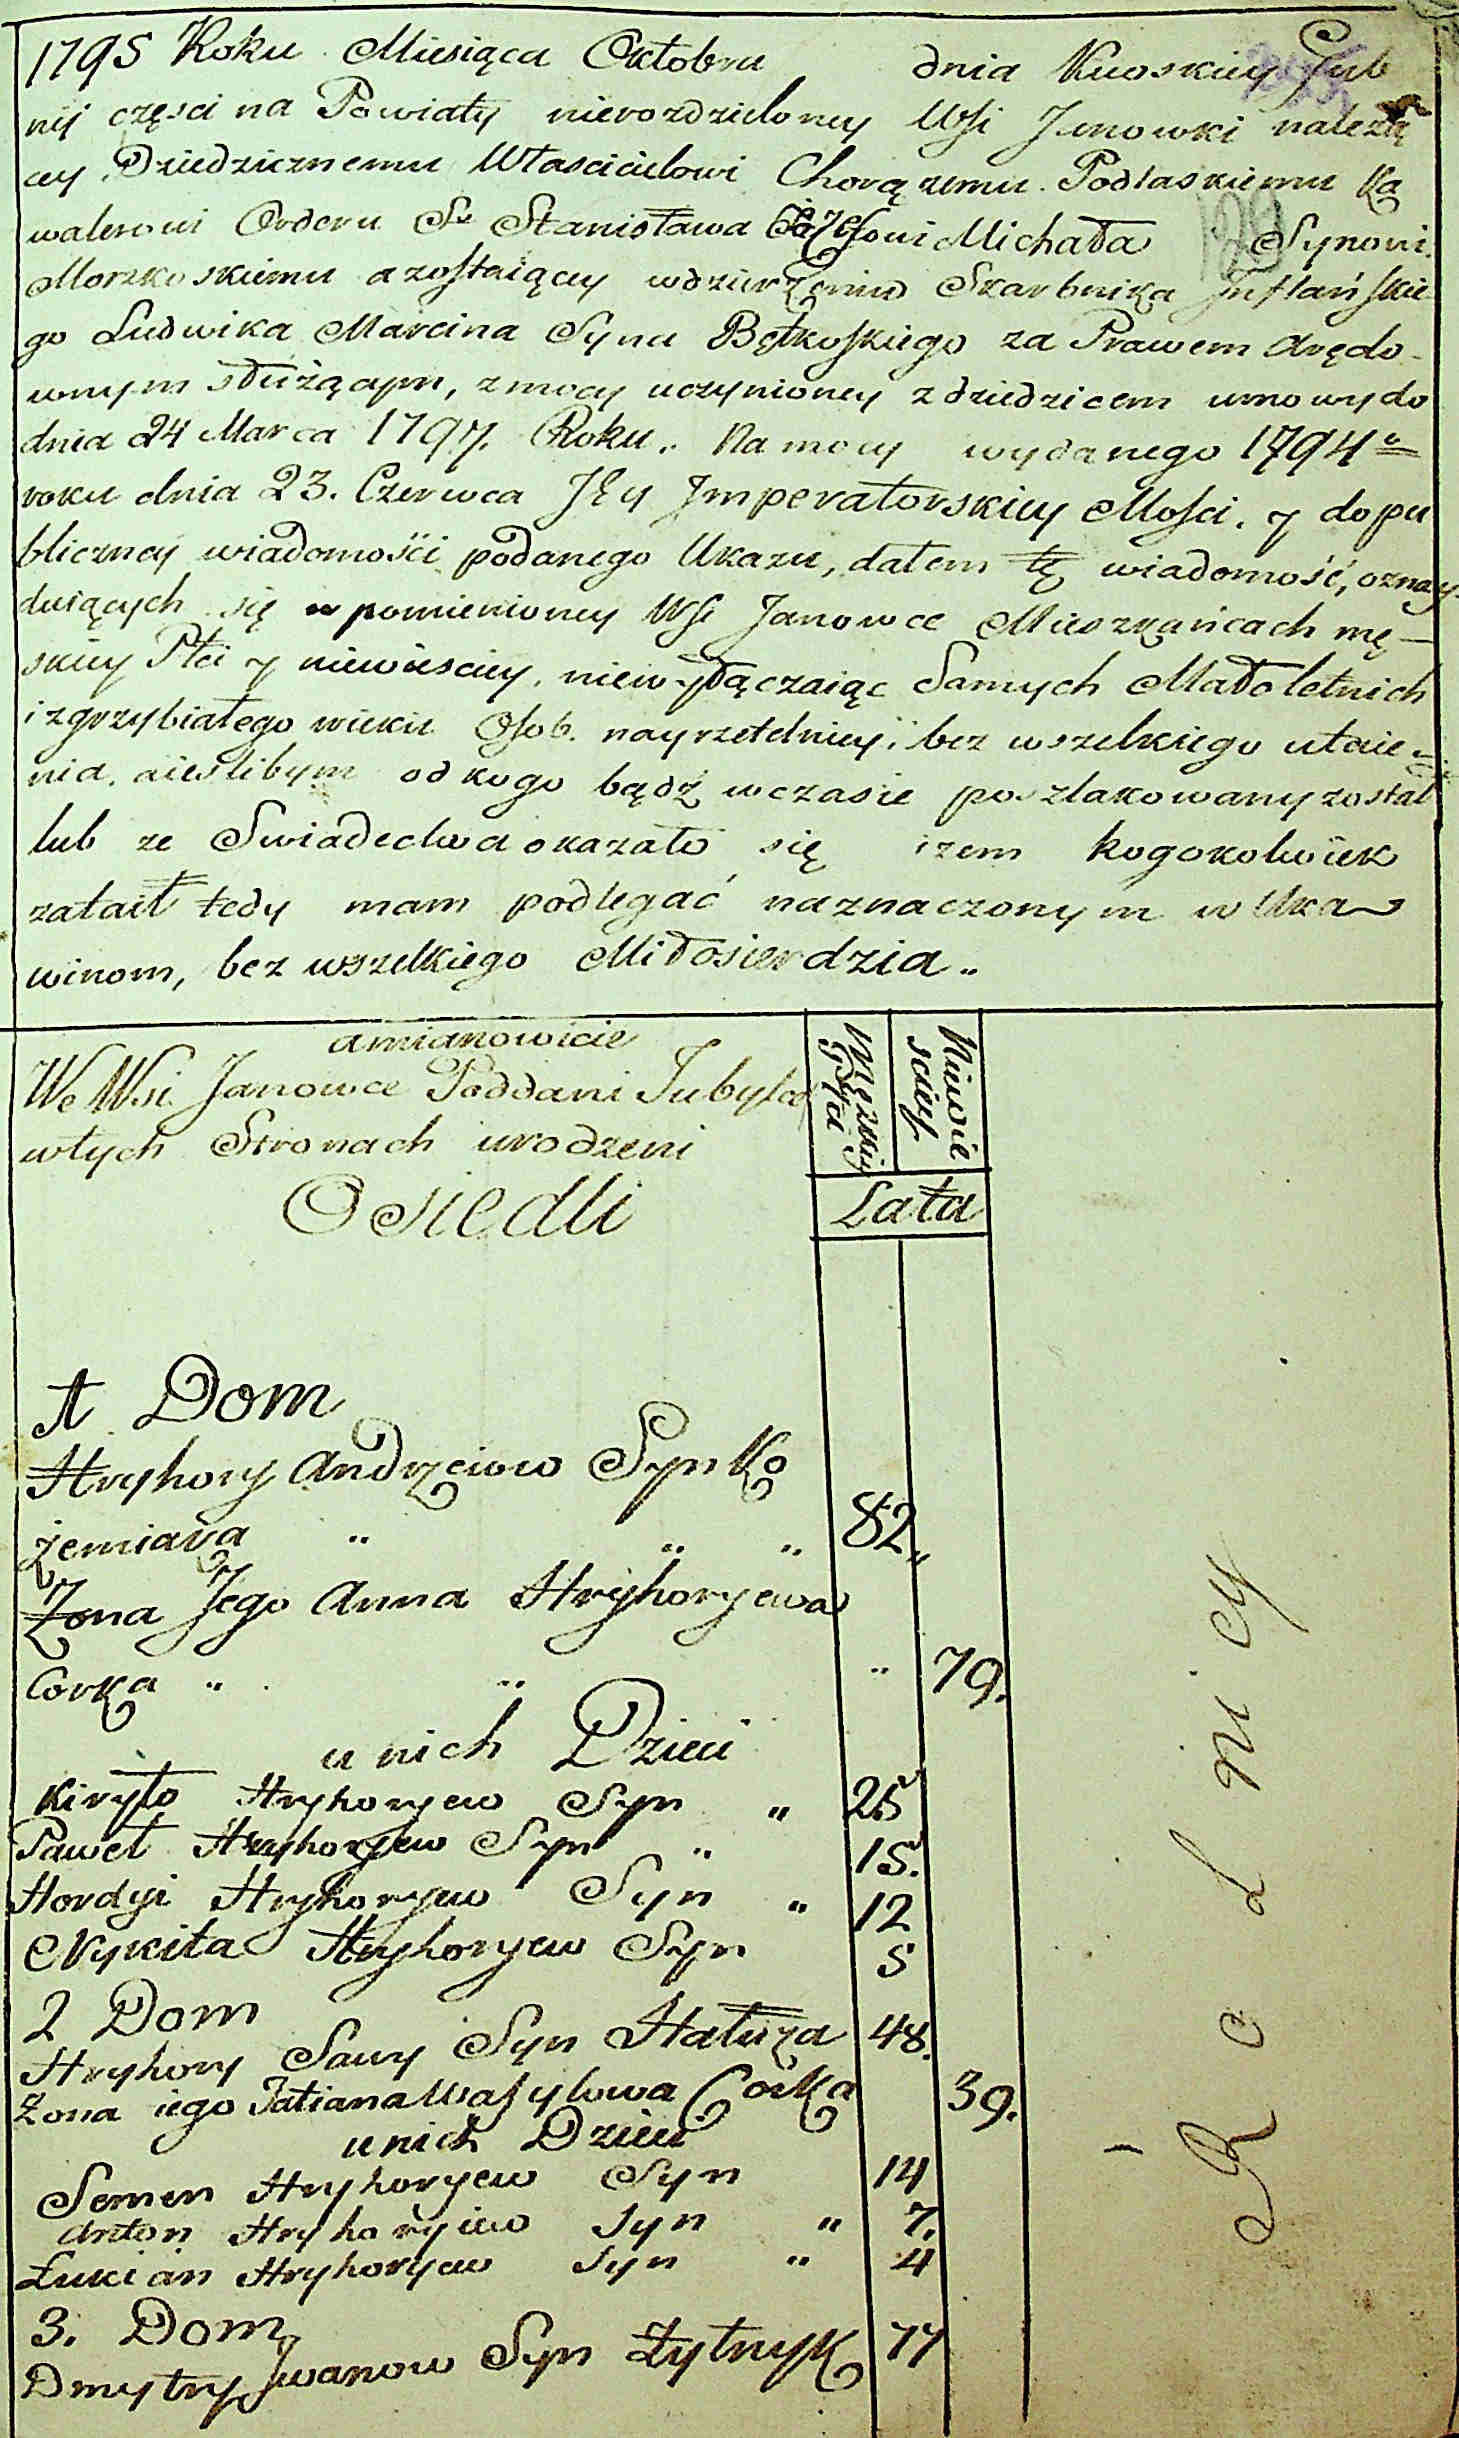 1795 Roku Miesiąca Oktobra dnia Kijoskiey Gub
nij częsci na Powiaty nierozdzieloney Wsi Janowki należą
cey Dziedzicznemu Włascicielowi Chorązemu Podlaskiemu Ka
walerowi Orderu Sw Stanisława Józefowi Michała Synowi
Morzkoskiemu a zostaiącey wdzierżeniu Skarbnika Inflańskie
go Ludwika Marcina Syna Bętkoskiego za Prawem Arędo
wnym słuźącym, zmocy uczynioney z dziedzicem umowy do
dnia 24 Marca 1797. Roku. Na mocy wydanego 1794º
roku dnia 23. Czerwca JEy Jmperatorskiey Mosci. y do pu
bliczney wiadomości podanego Ukazu, dałem tę wiadomość, oznay
duiących się w pomienioney Wsi Janowce Mieszkańcach mę
skiey Płci y niewiesciey, niewyłączaiąc Samych Małoletnich
i zgrzybiałego wieku Osob. nayrzetelniey, bez wszelkiego utaie
nia, aiesłibym od kogo bądź wczasie poszlakowany został
lub ze Swiadectwa okazało się izem kogokolwiek
zataił tedy mam podlegać naznaczonym w Uka
winom, bez wszelkiego Miłosierdzia..
amianowicie
We Wsi Janowce Poddani Tubylce
wtych Stronach urodzeni
Osiedli
Męskiey
Płci
Niewie
sciey
Lata
1 Dom
Hryhory Andrzeiow Syn Ko
żemiaka " " " 82"
Zona Jego Anna Hryhoryewa
Corka " " " 79.
u nich Dzieci
Kiryło Hryhoryew Syn " 25
Paweł Hryhoryew Syn " 15.
Hordyi Hryhoryew Syn " 12
Nykita Hryhoryew Syn 5
2 Dom
Hryhory Sawy Syn Hałuza 48.
Zona iego Tatiana Wasylowa Corka 39.
u nich Dzieci
Semen Hryhoryew Syn 14
Anton Hryhoryiew Syn " 7.
Łukian Hryhoryew Syn " 4
3. Dom
Dmytry Jwanow Syn Łytnyk 77
Rolnicy